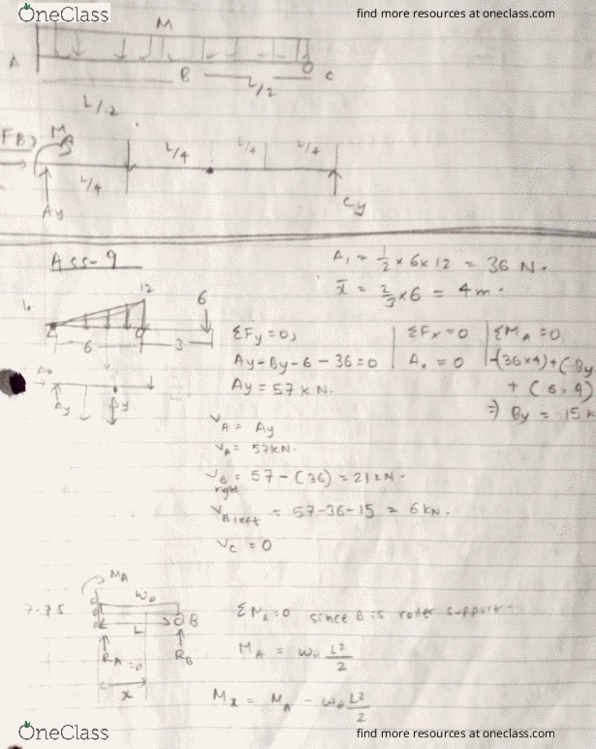 OneClass
find more resources at oneclass.com
M
A
B
L/2
C
L/2
FBD
M
L/4
L/4
L/4
L/4
Ay
Cy
Ass-9
A₁ = 1/2 × 6 × 12 = 36 N.
x̄ = 2/3 × 6 = 4 m.
1.
12
6
6
3
Ax
Ay
By
ΣFy = 0,
Ay - By - 6 - 36 = 0
Ay = 57 kN.
ΣFx = 0
Ax = 0
ΣMA = 0
-(36×4) + (By
+ (6×9)
⇒ By = 15 k
VA = Ay
VA = 57 kN.
VB right = 57 - (36) = 21 kN.
VB left = 57 - 36 - 15 = 6 kN.
VC = 0
7.75
MA
W₀
L
B
RA = 0
RB
x
since B is roller support.
MA = w₀ L²/2
Mx = MA - w₀ L²/2
OneClass
find more resources at oneclass.com